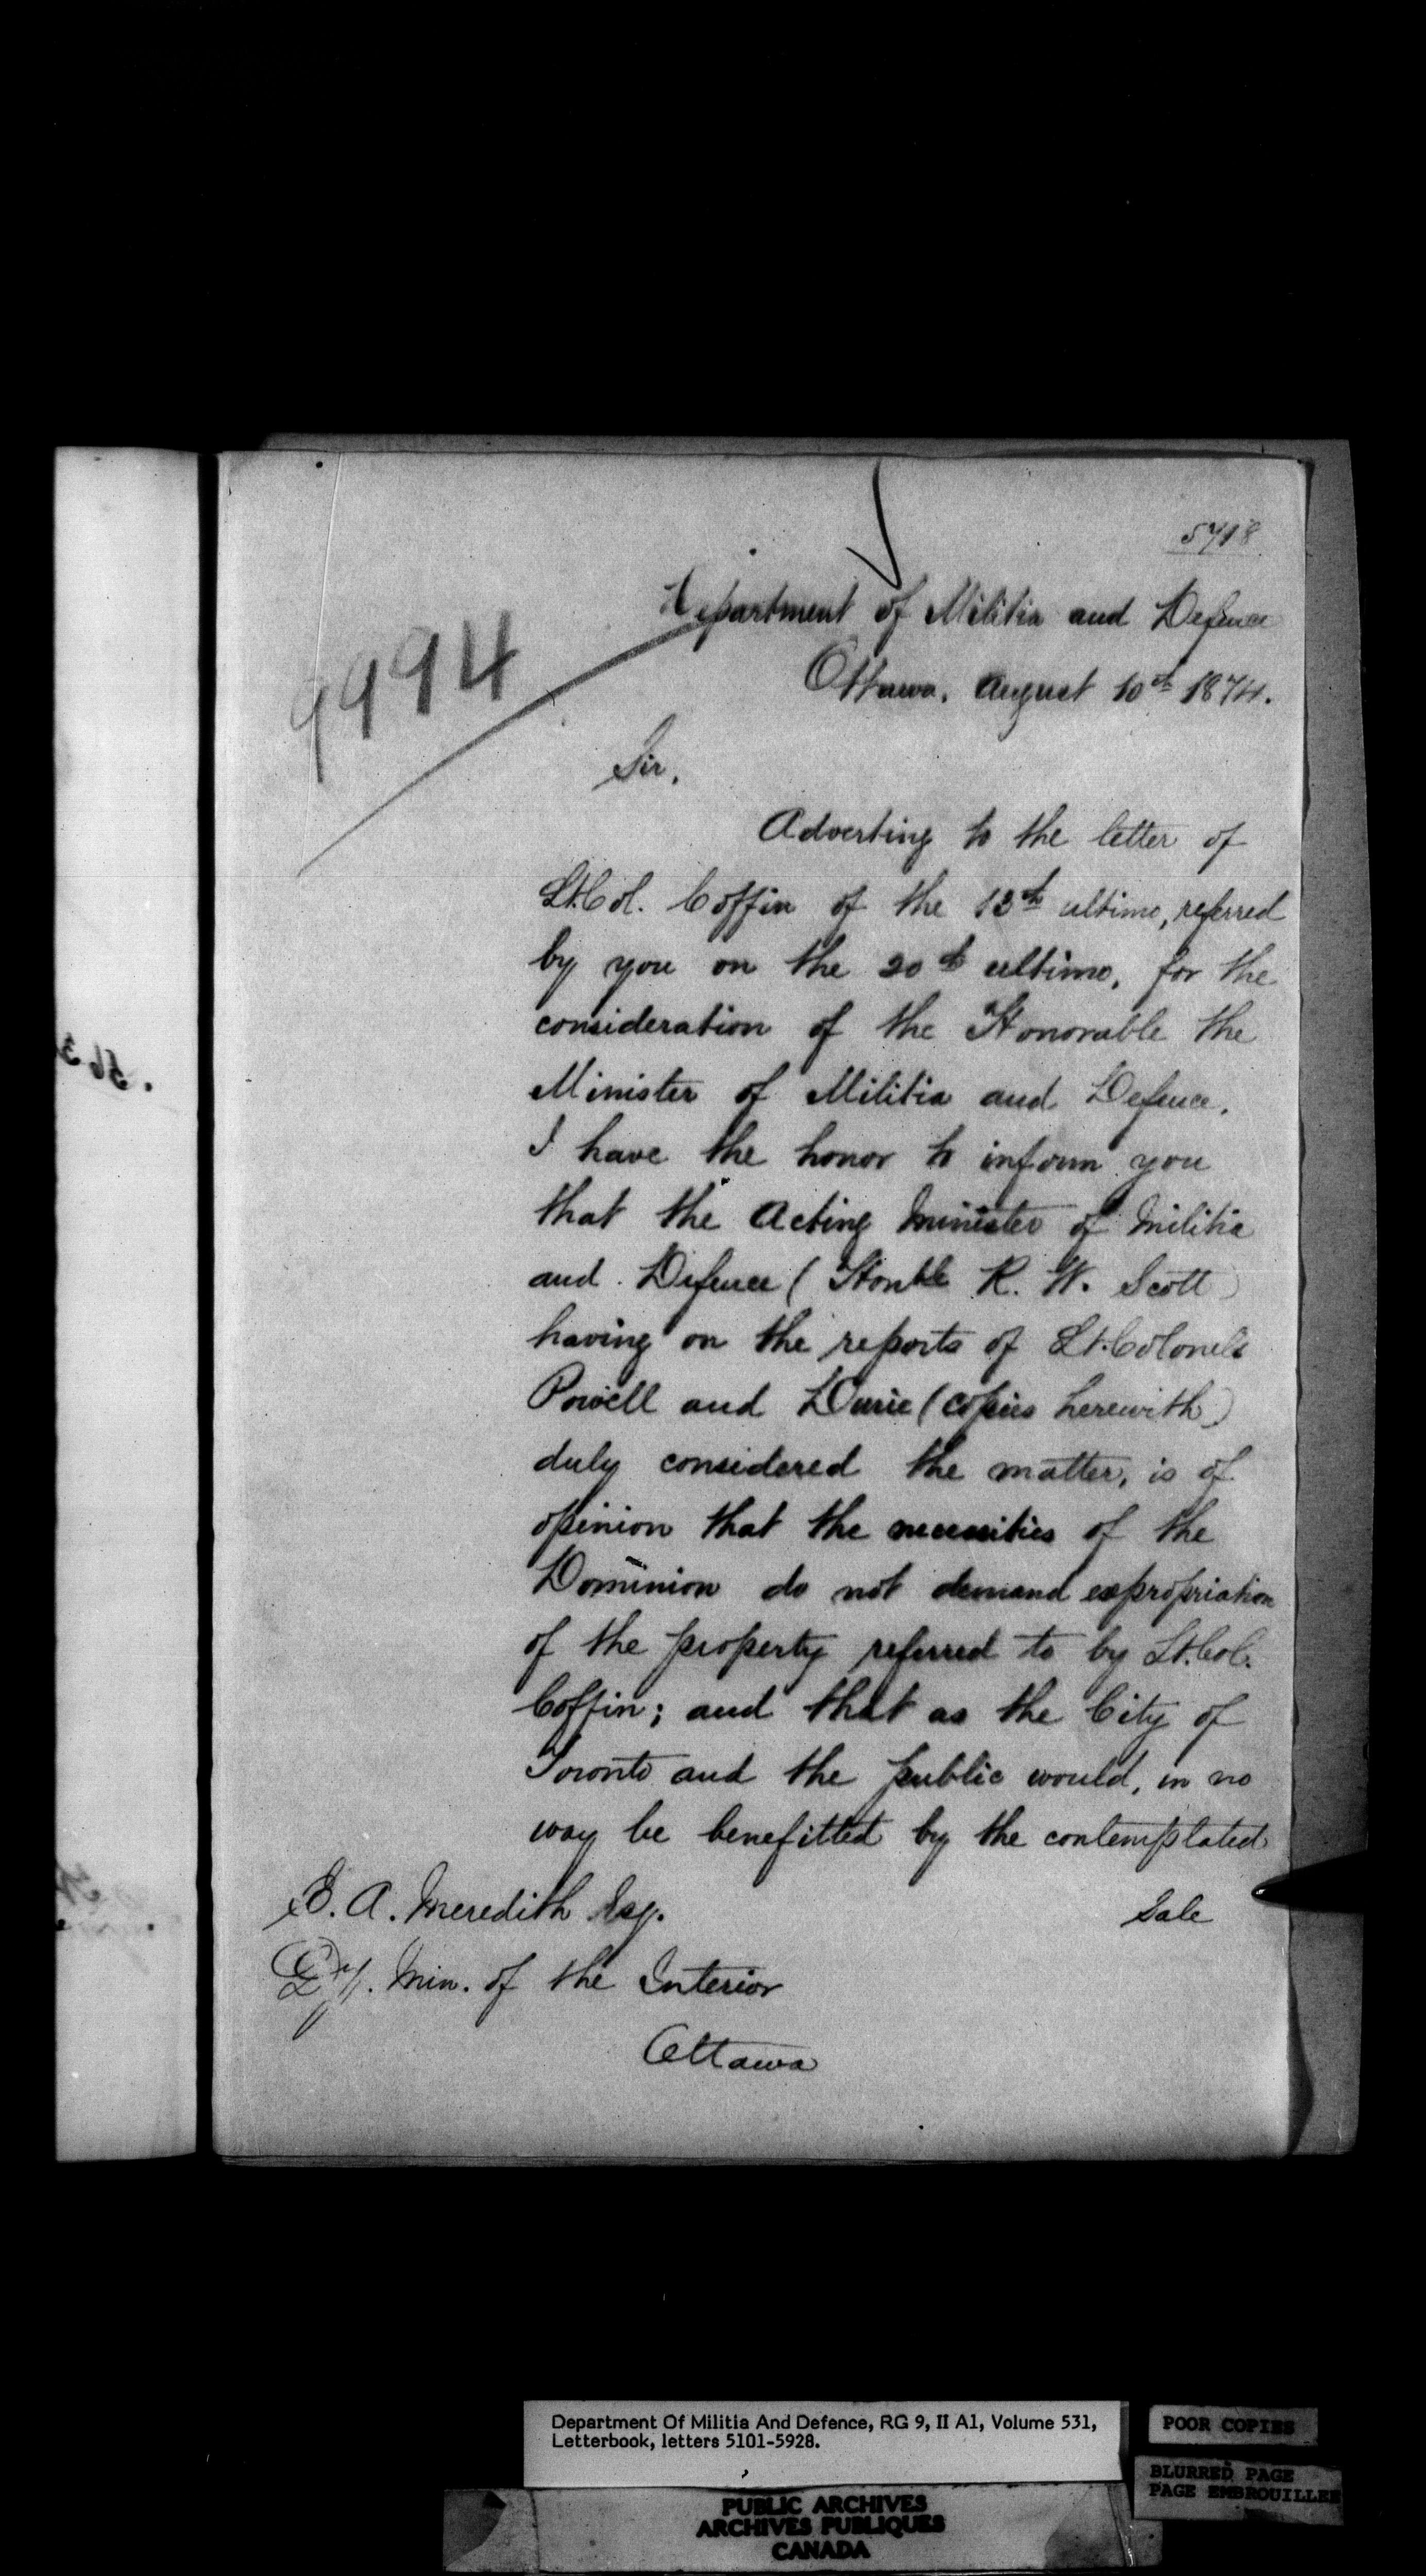 5718
Department of Militia and Defence
9994
Ottawa, August 10th 1874.
Sir,
Adverting to the letter of
Lt. Col. Coffin of the 13th ultimo, referred
by you on the 20th ultimo, for the
consideration of the Honorable the
Minister of Militia and Defence,
I have the honor to inform you
that the Acting Minister of Militia
and Defence (Honble R. W. Scott)
having on the reports of Lt. Colonels
Powell and Durie (copies herewith)
duly considered the matter, is of
opinion that the necessities of the
Dominion do not demand expropriation
of the property referred to by Lt. Col.
Coffin; and that as the City of
Toronto and the public would, in no
way be benefitted by the contemplated
Sale
E. A. Meredith Esq.
Dy. Min. of the Interior
Ottawa
Department Of Militia And Defence, RG 9, II A1, Volume 531,
Letterbook, letters 5101-5928.
POOR COPIES
BLURRED PAGE
PAGE EMBROUILLEE
PUBLIC ARCHIVES
ARCHIVES PUBLIQUES
CANADA